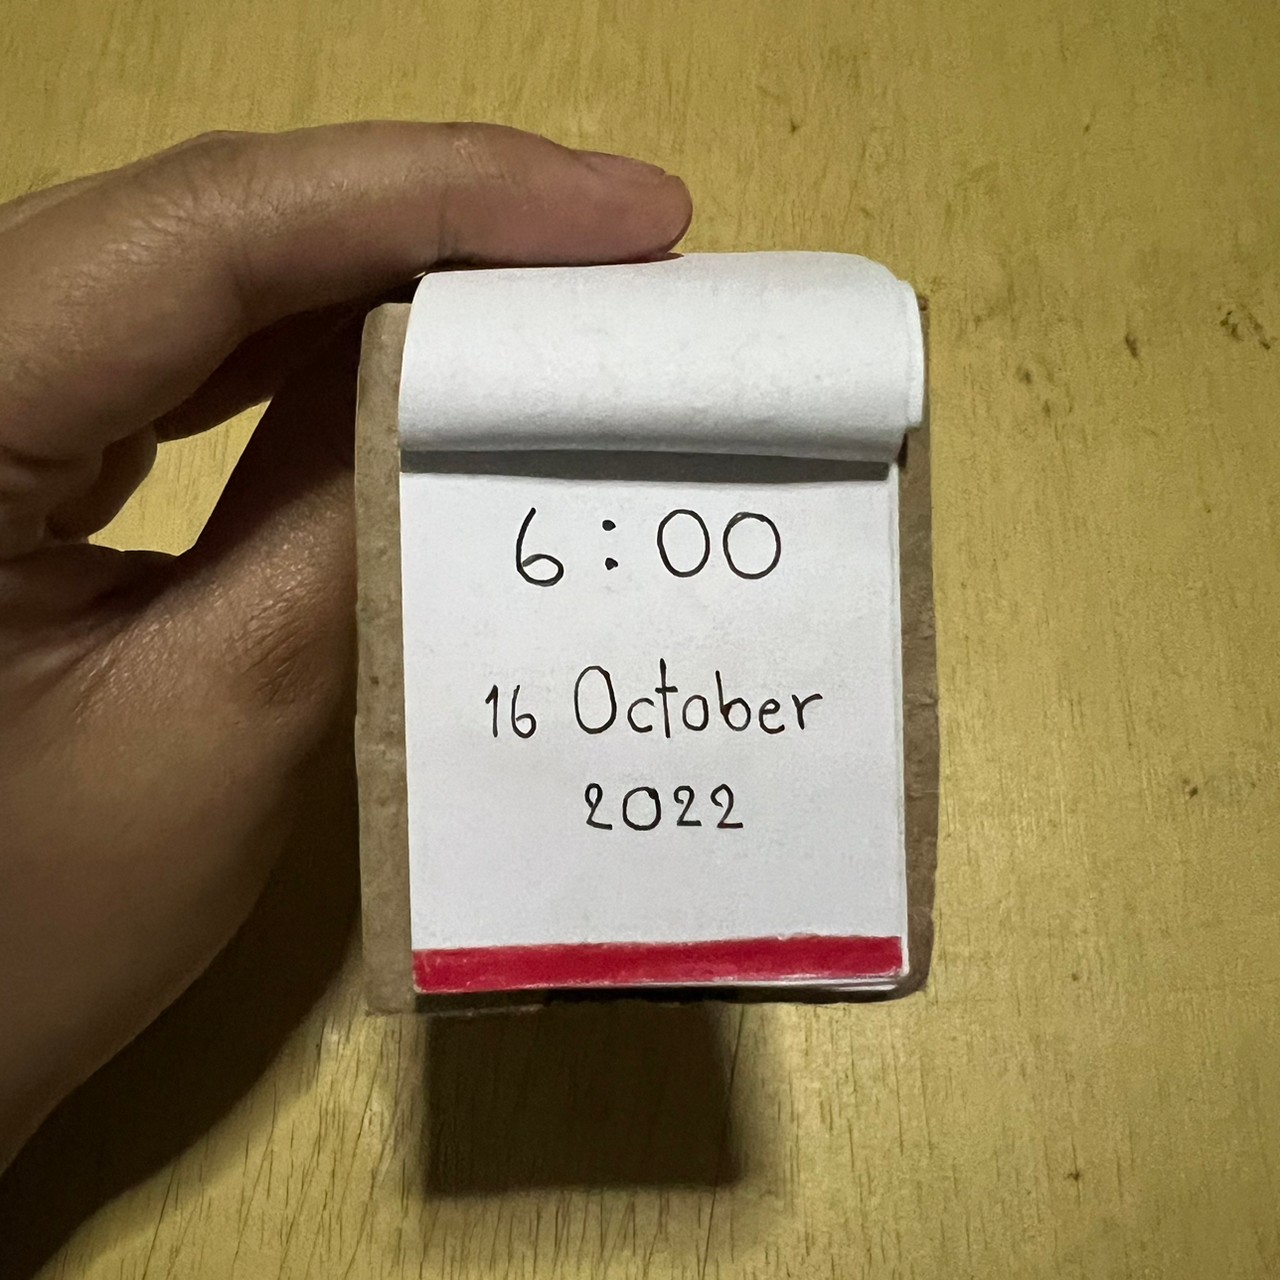 6:00
16 October
2022